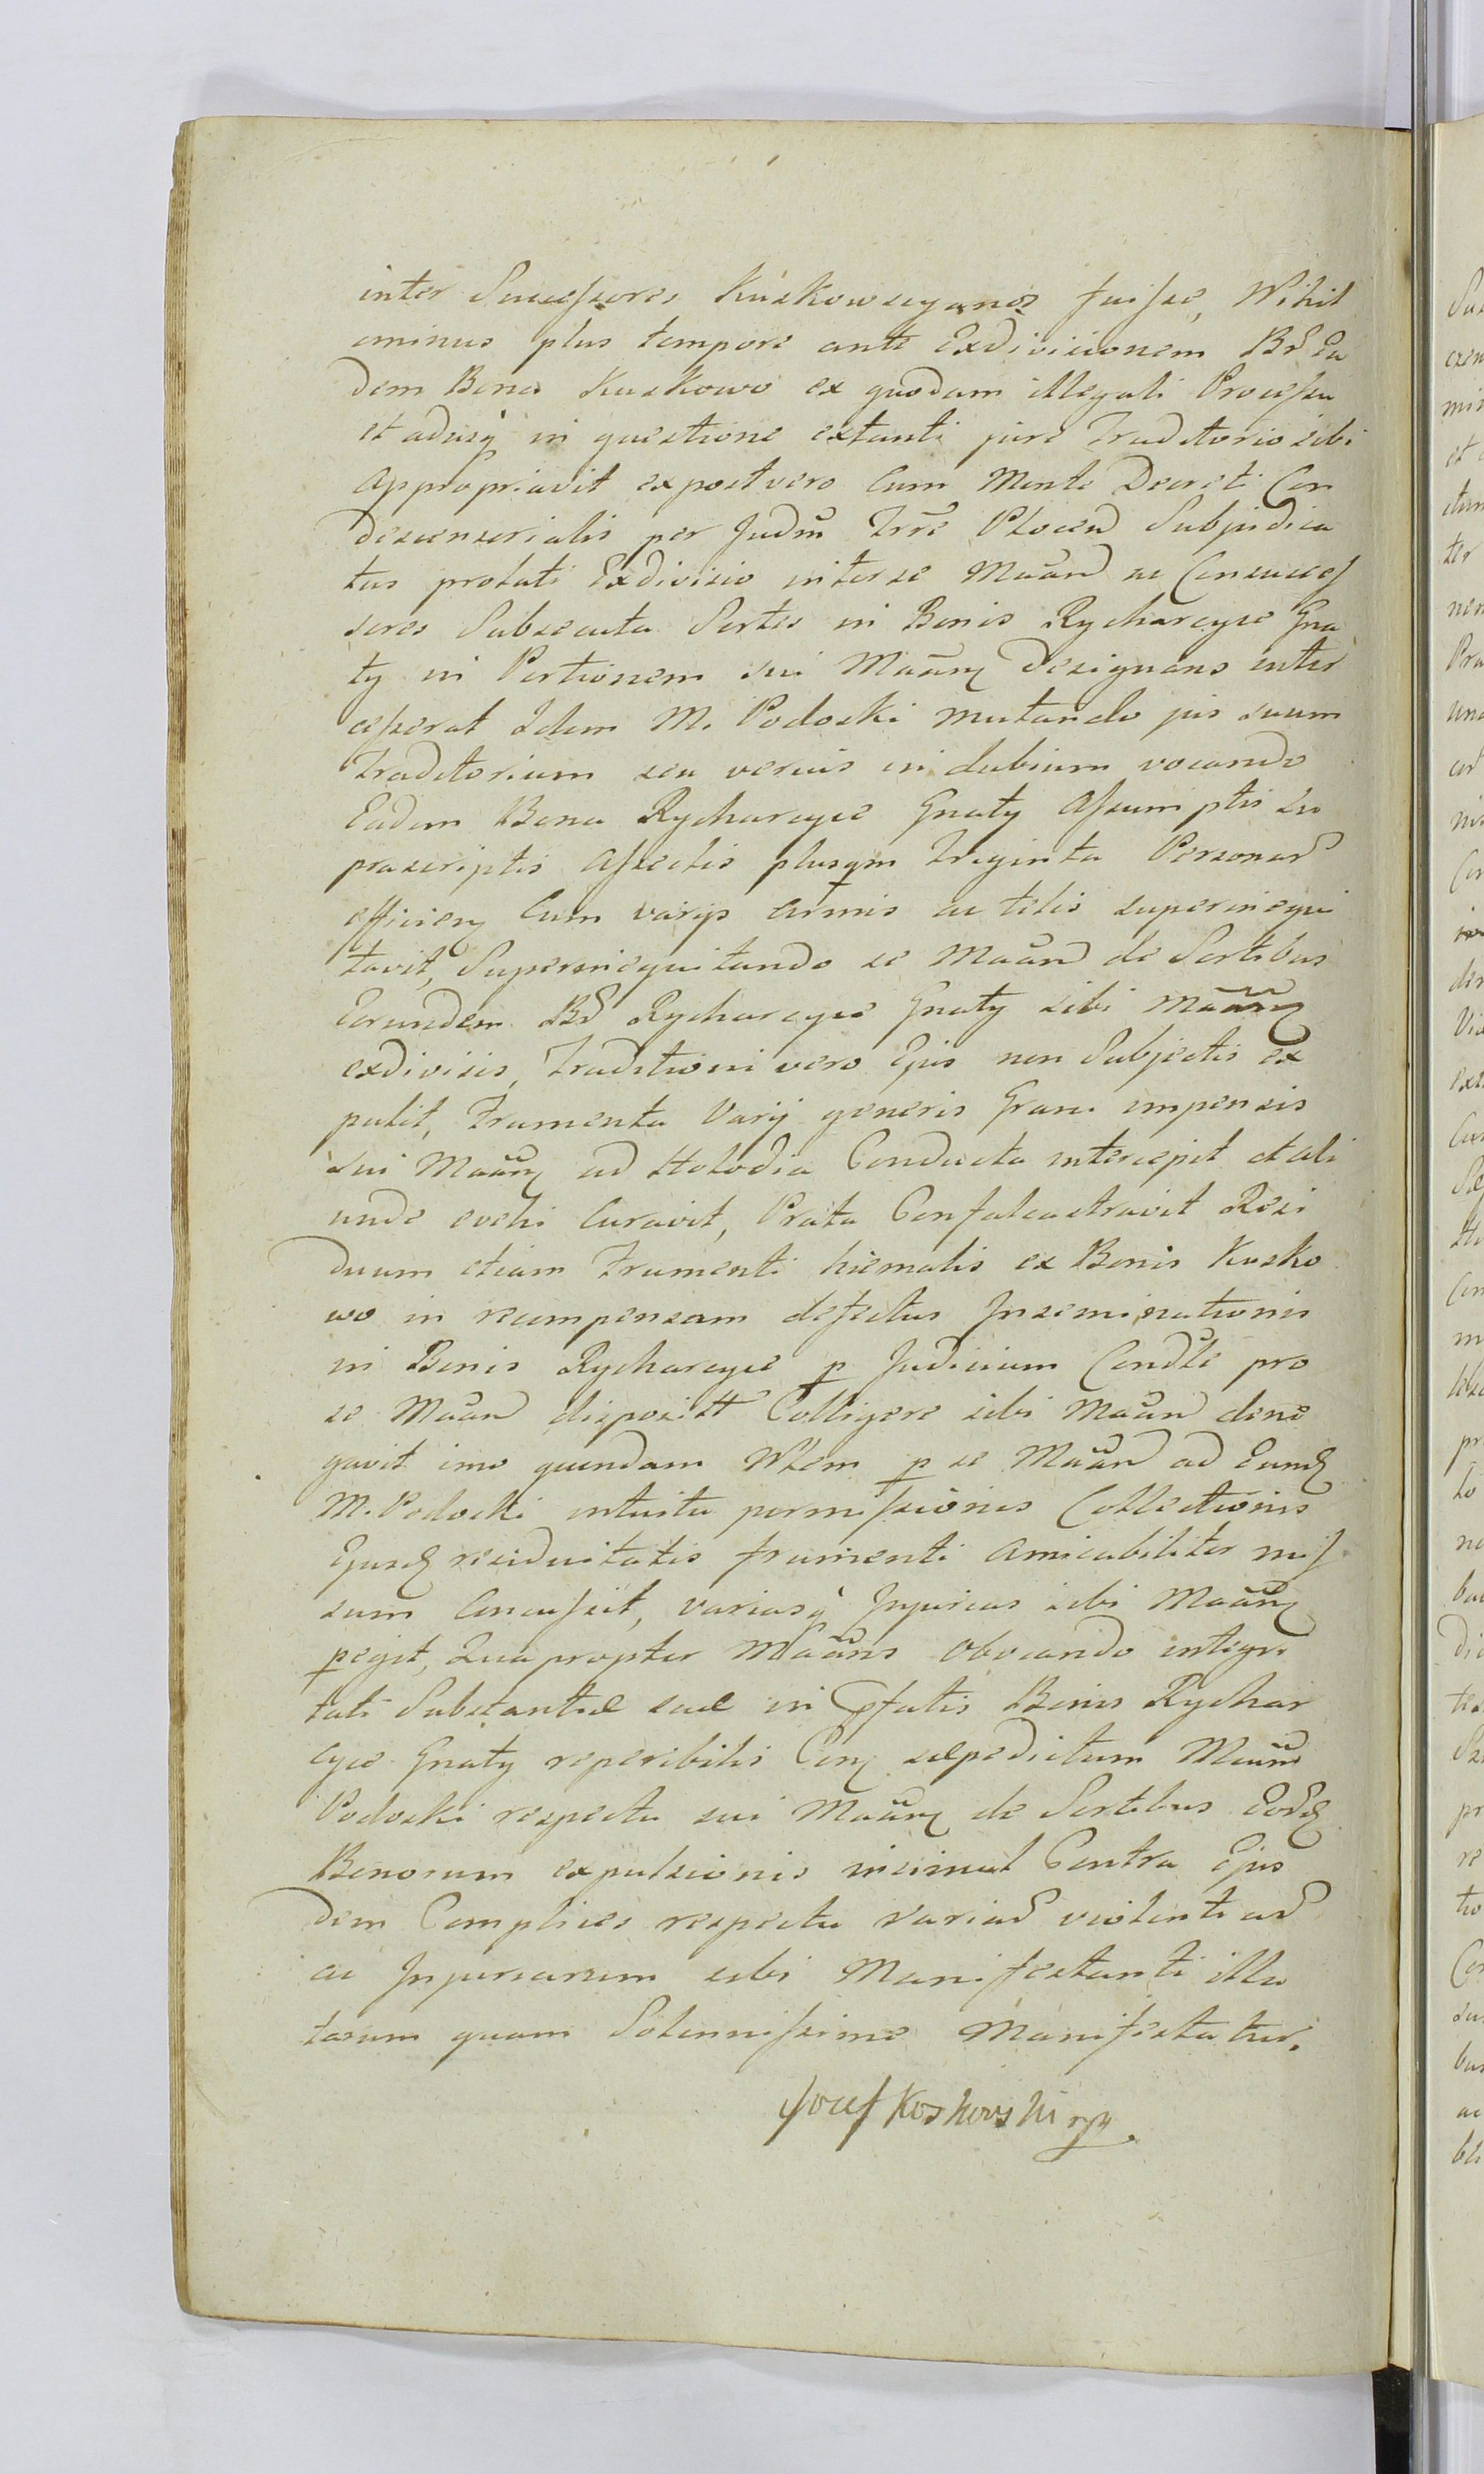 inter Successores Kuskowscyanos fuisse, Nihil
ominus plus tempore ante Exdivisionem Bd Ea
dem Bona Kuskowo ex quodam illegali Processu
et adusq in questione extanti jure Traditorio sibi
appropriavit expost vero Cum Mente Decreti Con
descensorialis per Judm Trre Plocen Subjudica
tus prolati Exdivisio inter se Maan ac Consucces
sores Subsecuta Sortes in Bonis Rycharcyce Gna
ty in Portionem sui Maan designans inter
cesserat Idem M. Podoski mutando jus suum
Traditorium seu verius in dubium vocando
Eadem Bona Rycharcyce Gnaty Assumptis su
prascriptis Asseclis plusqm Triginta Personar
efficien Cum varijs armis ac telis superinequi
tavit, Superinequitando se Maan de Sortibus
Eorundem Bd Rycharcyce Gnaty sibi Maan
exdivisis, Traditioni vero Ejus non Subjectis ex
pulit, Frumenta Varij generis Grani impensis
sui Maan ad Holodia Conducta intercepit et ali
unde evehi Curavit, Prata Confalcastravit Resi
duum etiam Frumenti hiemalis ex Bonis Kusko
wo in recompensam defectus Inseminationis
in Bonis Rycharcyce p Judicium Condle pro
se Maan disposit Colligere sibi Maan dene
gavit imo quendam Nlem p se Maan ad Eund
M. Podoski intuitu permissionis Collectionis
Ejusd residuitatis frumenti Amicabiliter mis
sum Concussit, variasq Injurias sibi Maan
pegit, Qua propter Maans obviando integri
tati Substantiæ suæ in Pfatis Bonis Rychar
cyce Gnaty reperibilis Con sæpedictum Maan
Podoski respectu sui Maan de Sortibus Eord
Bonorum expulsionis insimul Contra Ejus
dem Complices respectu variar violentiar
ac Injuriarum sibi Manifestanti illa
tarum quam Solennissime Manifestatur.
Jozef Koskowski